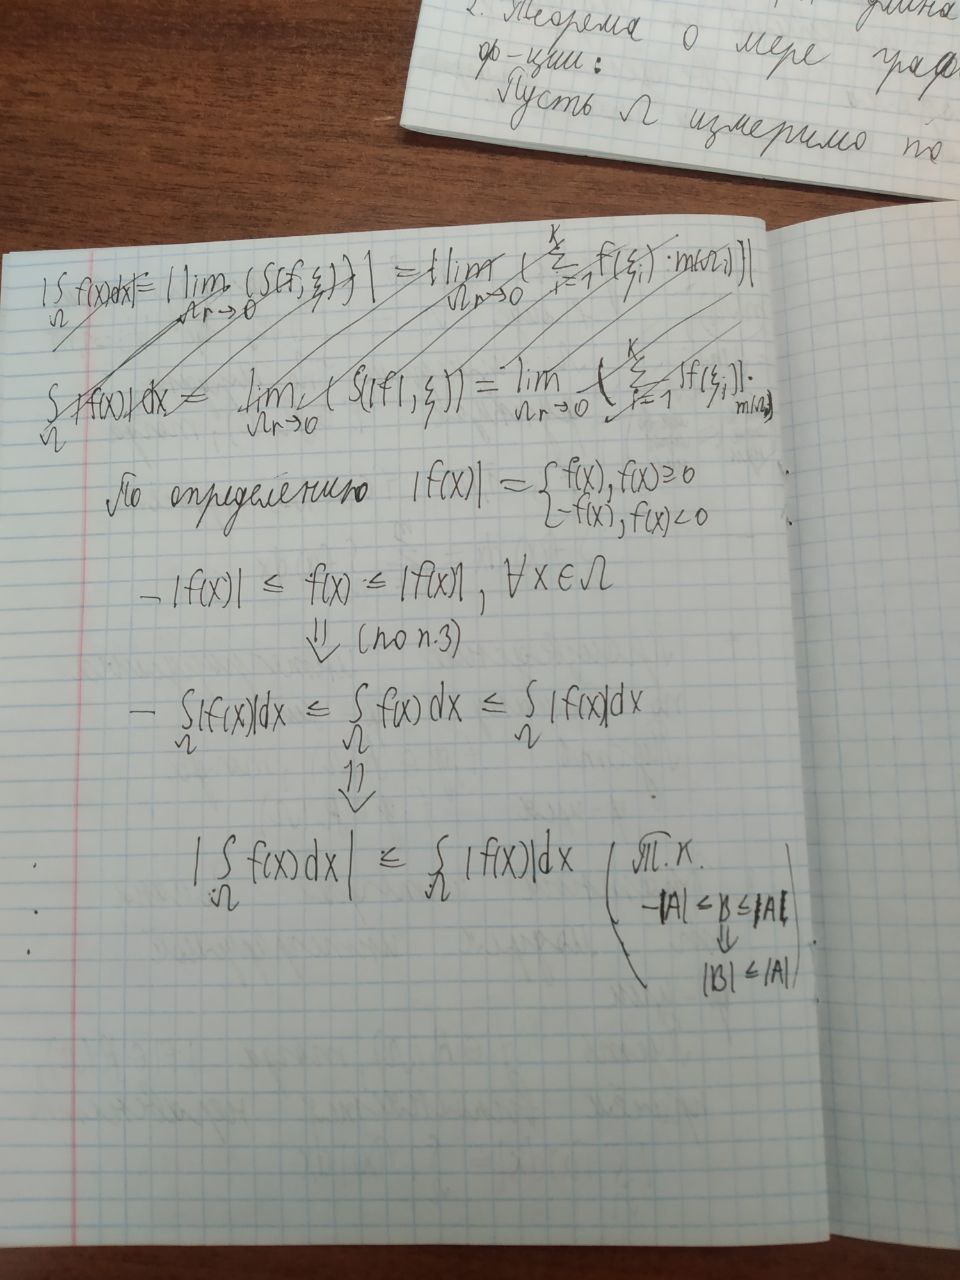 2. Теорема о мере граф
ф-ции:
Пусть Ω измеримо по
|∫_Ω f(x)dx| = |lim_{Ωr→0} (S(f,ξ))| = |lim_{Ωr→0} (∑_{i=1}^{K} f(ξ_i)·m(Ω_i))|
∫_Ω |f(x)|dx = lim_{Ωr→0} (S(|f|,ξ)) = lim_{Ωr→0} (∑_{i=1}^{K} |f(ξ_i)|·m(Ω_i))
По определению |f(x)| = { f(x), f(x)≥0
-f(x), f(x)<0
-|f(x)| ≤ f(x) ≤ |f(x)|, ∀x∈Ω
⇓ (по п.3)
- ∫_Ω |f(x)|dx ≤ ∫_Ω f(x)dx ≤ ∫_Ω |f(x)|dx
⇓
|∫_Ω f(x)dx| ≤ ∫_Ω |f(x)|dx ( Т.к.
-|A| ≤ B ≤ |A|
⇓
|B| ≤ |A| )